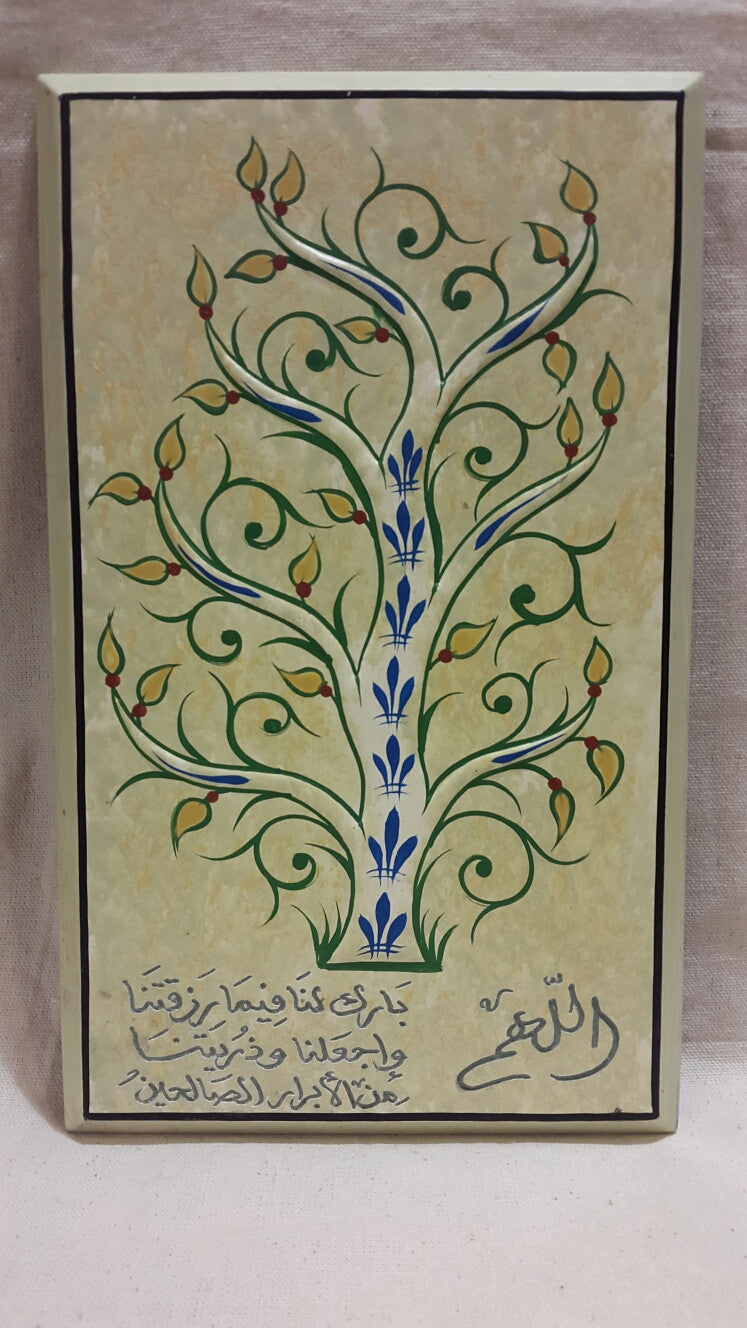 اللّهمّ
بَارك لنَا فِيمَا رَزقتَنَا
واجعَلنا وذُريَتَنَا
مِنَ الأبرار الصَالحين